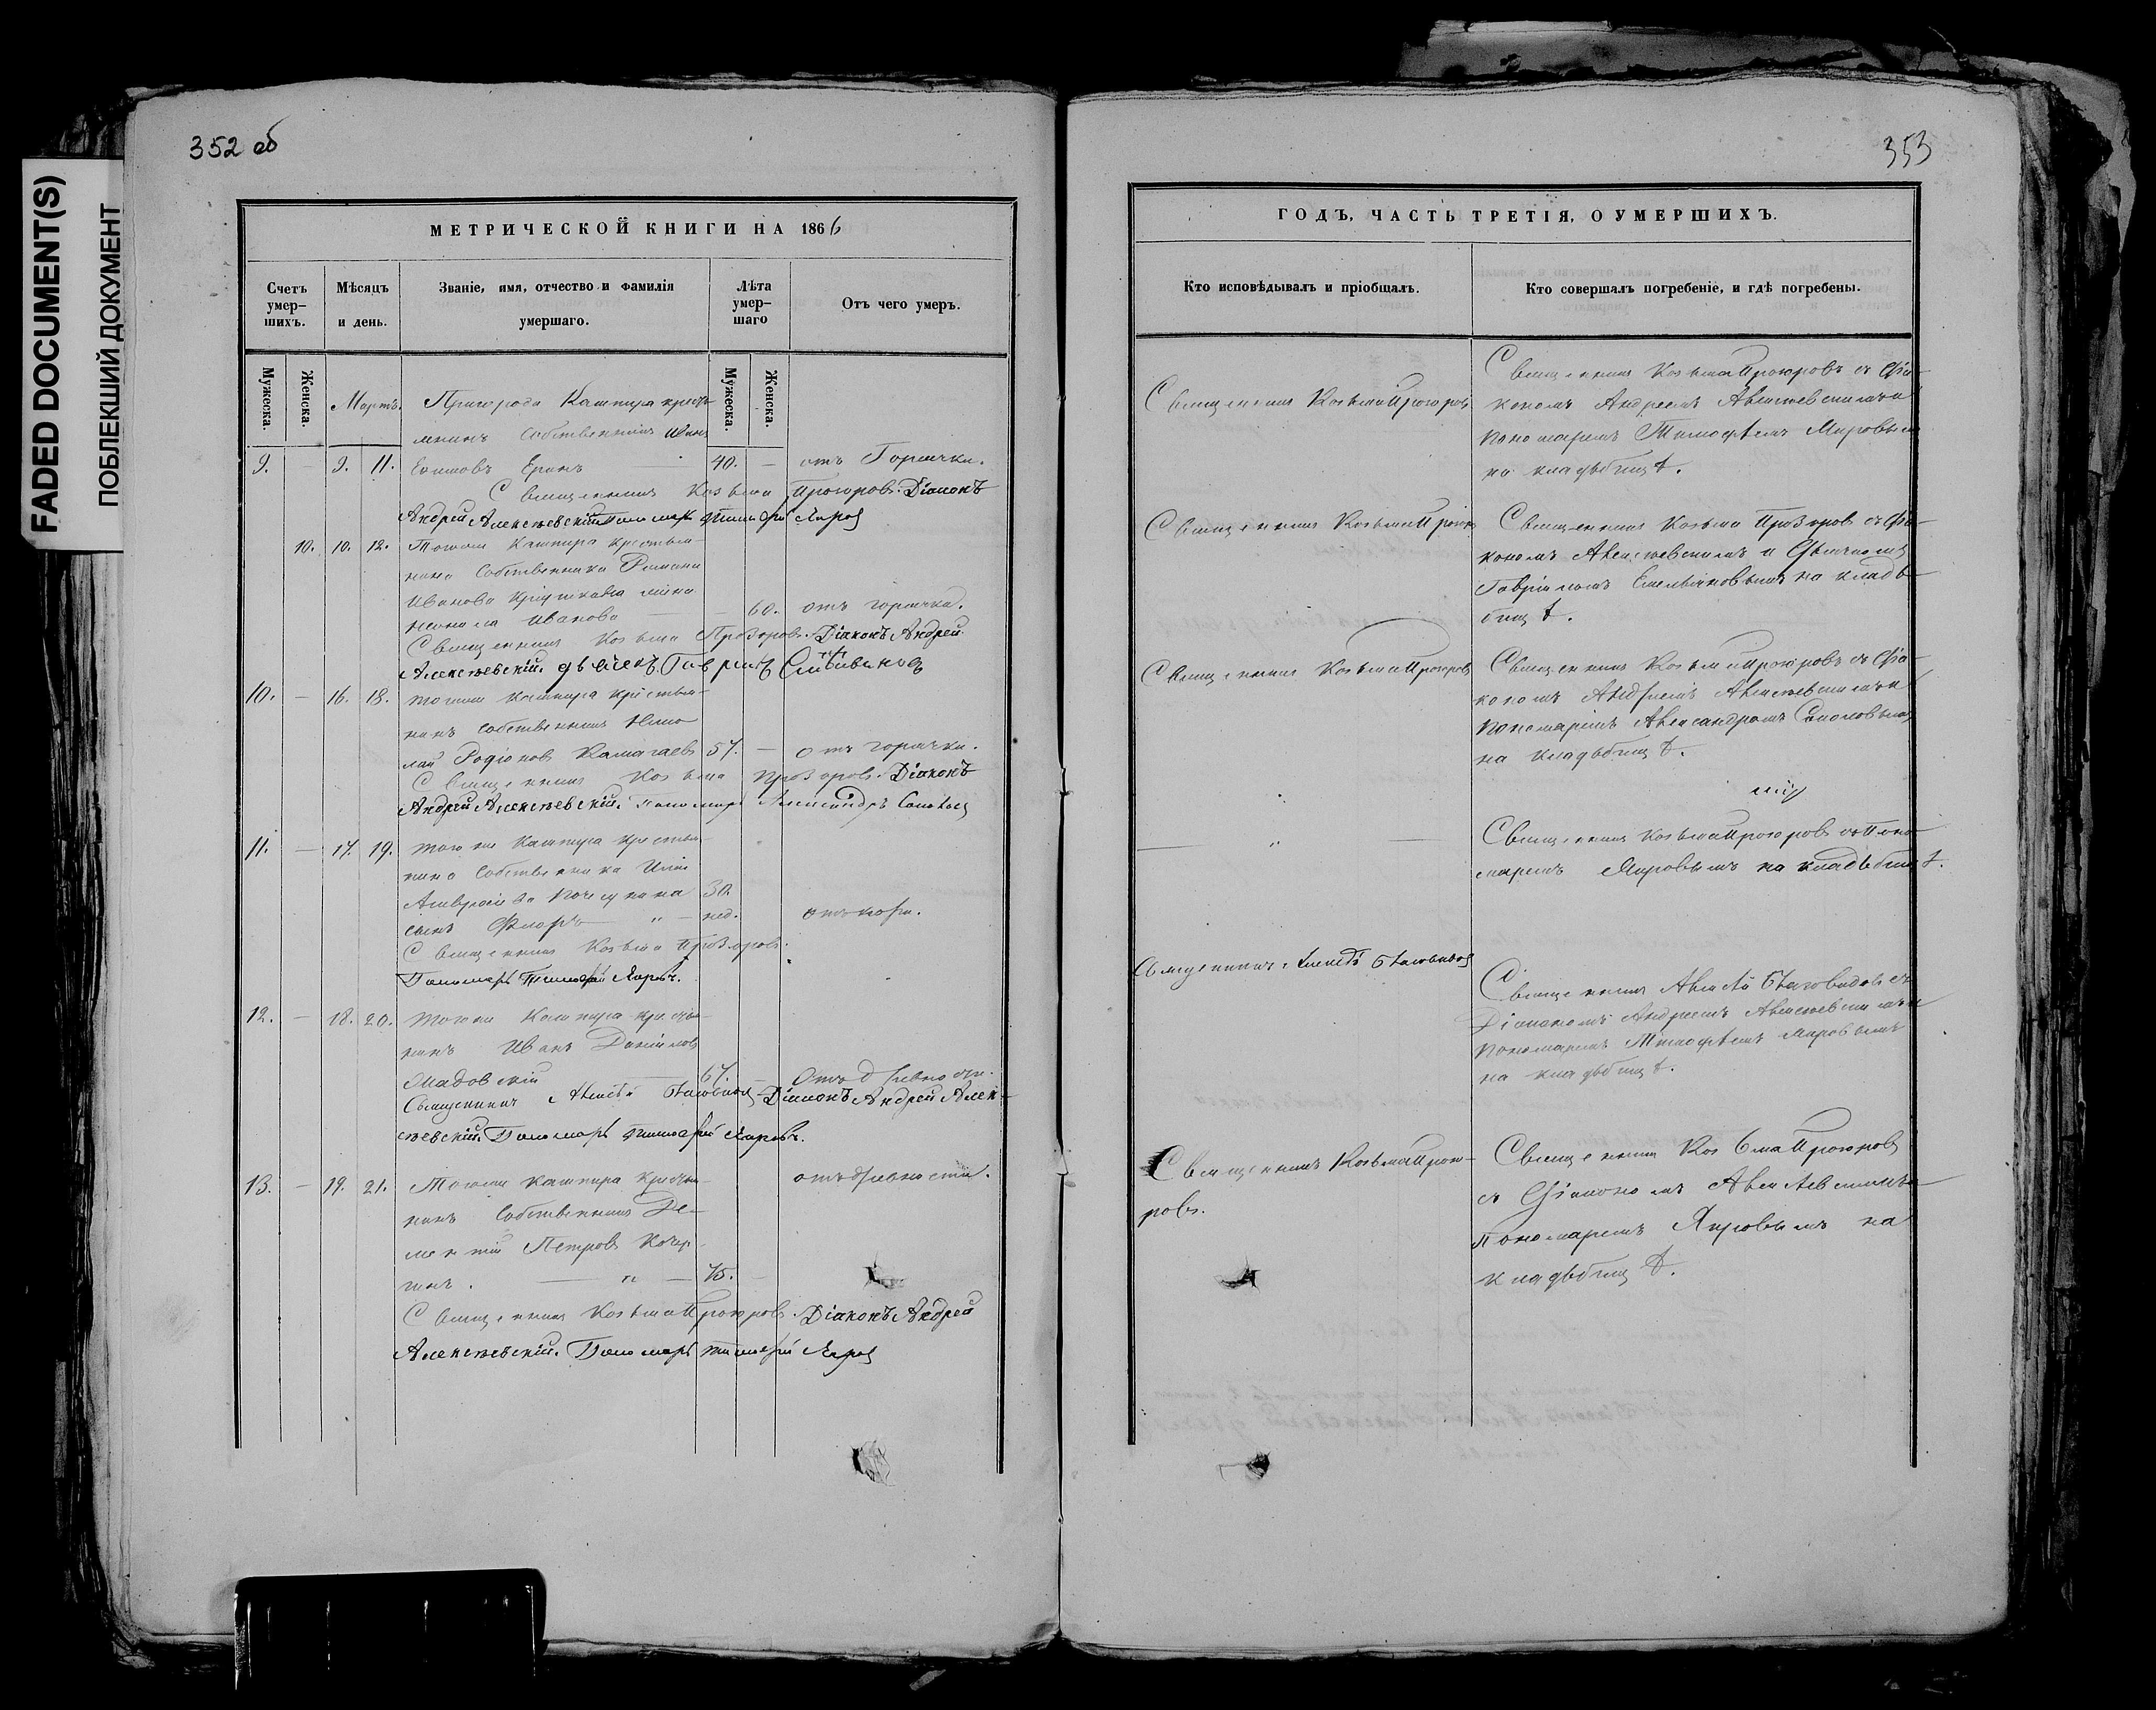 FADED DOCUMENT(S)
ПОБЛЕКШИЙ ДОКУМЕНТ
352 об
МЕТРИЧЕСКОЙ КНИГИ НА 1866
Счетъ умер-
шихъ.
Мѣсяцъ
и день.
Званіе, имя, отчество и фамилія
умершаго.
Лѣта
умер-
шаго
Отъ чего умеръ.
Мужеска.
Женска.
Мужеска.
Женска.
Мартъ.
Пригорода Кашпира кресть
янинъ Собственникъ Иванъ
9. — 9. 11. Еринъ 40. — отъ Горячки.
Священникъ Козьма Прозоровъ. Діаконъ
Андрей Алексѣевскій Пономарь Тимофей Яиров
10. 10. 12. Тогоже Кашпира крестья-
нина Собственника Романа
Иванова жена
Иванова — 60. отъ горячки.
Священникъ Козьма Прозоровъ. Діаконъ Андрей
Алексѣевскій. дьячекъ Гавріилъ
10. — 16. 18. тогоже Кашпира крестья-
нинъ Собственникъ Нико
лай Родіоновъ 57. — отъ горячки.
Священникъ Козьма Прозоровъ. Діаконъ
Андрей Алексѣевскій. пономарь Александръ
11. — 17. 19. тогоже Кашпира крестья-
нина Собственника
30.
сынъ Флоръ " — нед. отъ кори.
Священникъ Козьма Прозоровъ.
Пономарь Тимофей Яировъ.
12. — 18. 20. тогоже Кашпира крестья-
нинъ Иванъ Даниловъ
67. — Отъ древности.
Священникъ Алексѣй Діаконъ Андрей Алек-
сѣевскій. Пономарь Тимофей Яировъ.
13. — 19. 21. Тогоже Кашпира крестья- отъ древности.
нинъ Собственникъ Де-
ментій Петровъ Кочер-
гинъ. — " — 75. —
Священникъ Козьма Прозоровъ. Діаконъ Андрей
Алексѣевскій. Пономарь Тимофей Яиров
353
ГОДЪ, ЧАСТЬ ТРЕТІЯ, О УМЕРШИХЪ.
Кто исповѣдывалъ и пріобщалъ.
Кто совершалъ погребеніе, и гдѣ погребены.
Священникъ Козьма Прозоровъ
Священникъ Козьма Прозоровъ съ Діа-
кономъ Андреемъ Алексѣевскимъ и
пономаремъ Тимофѣемъ Яировымъ
на кладьбищѣ.
Священникъ Козьма Прозор
Священникъ Козьма Прозоровъ съ Діа-
кономъ Алексѣевскимъ и Дьячкомъ
Гавріиломъ на кладь-
бищѣ.
Священникъ Козьма Прозоровъ
Священникъ Козьма Прозоровъ съ Діа-
кономъ Андреемъ Алексѣевскимъ и
пономаремъ Александромъ
на кладьбищѣ.
— " —
Священникъ Козьма Прозоровъ съ Поно-
маремъ Яировымъ на кладьбищѣ.
Священникъ Алексѣй
Священникъ Алексѣй съ
Діакономъ Андреемъ Алексѣевскимъ и
пономаремъ Тимофѣемъ Яировымъ
на кладьбищѣ.
Священникъ Козьма Прозо-
ровъ.
Священникъ Козьма Прозоровъ
съ Діакономъ Алексѣевскимъ и
пономаремъ Яировымъ на
кладьбищѣ.